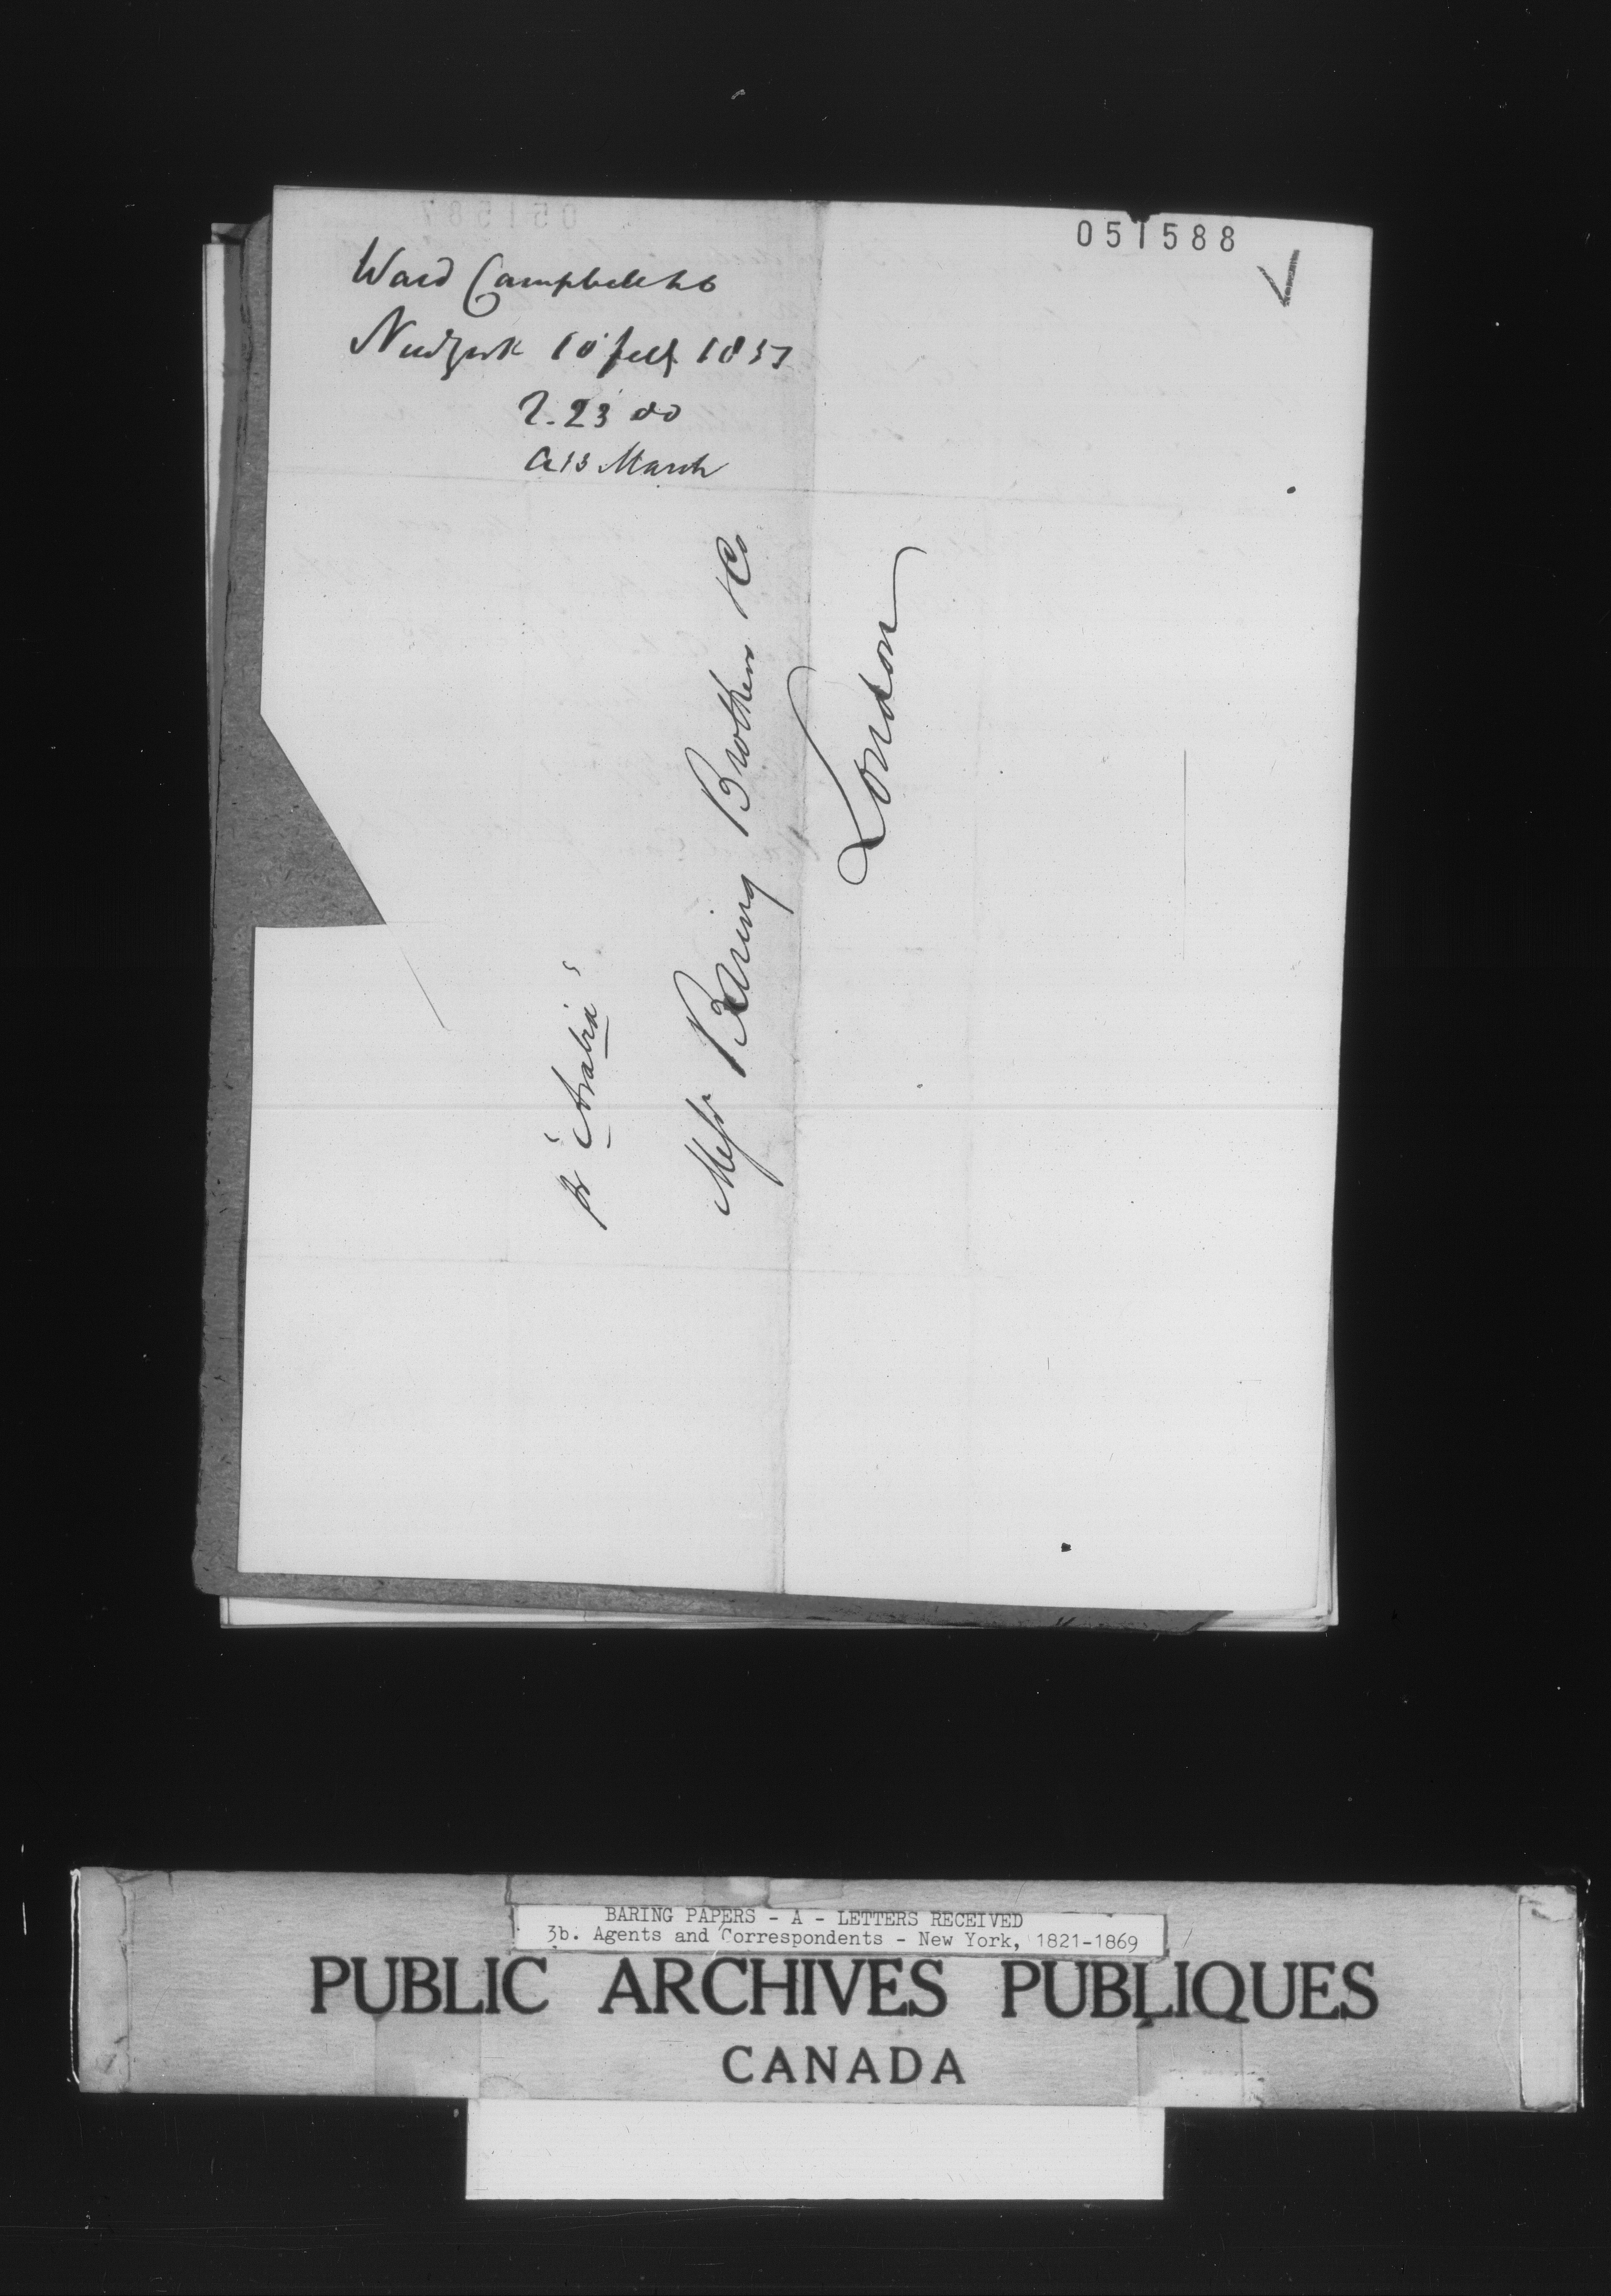 051588
Ward Campbell & Co
New York 10 feby 1857
R. 23 do
A 13 March
pr "Arabia"
Messr Baring Brothers & Co
London
BARING PAPERS - A - LETTERS RECEIVED
3b. Agents and Correspondents - New York, 1821-1869
PUBLIC ARCHIVES PUBLIQUES
CANADA